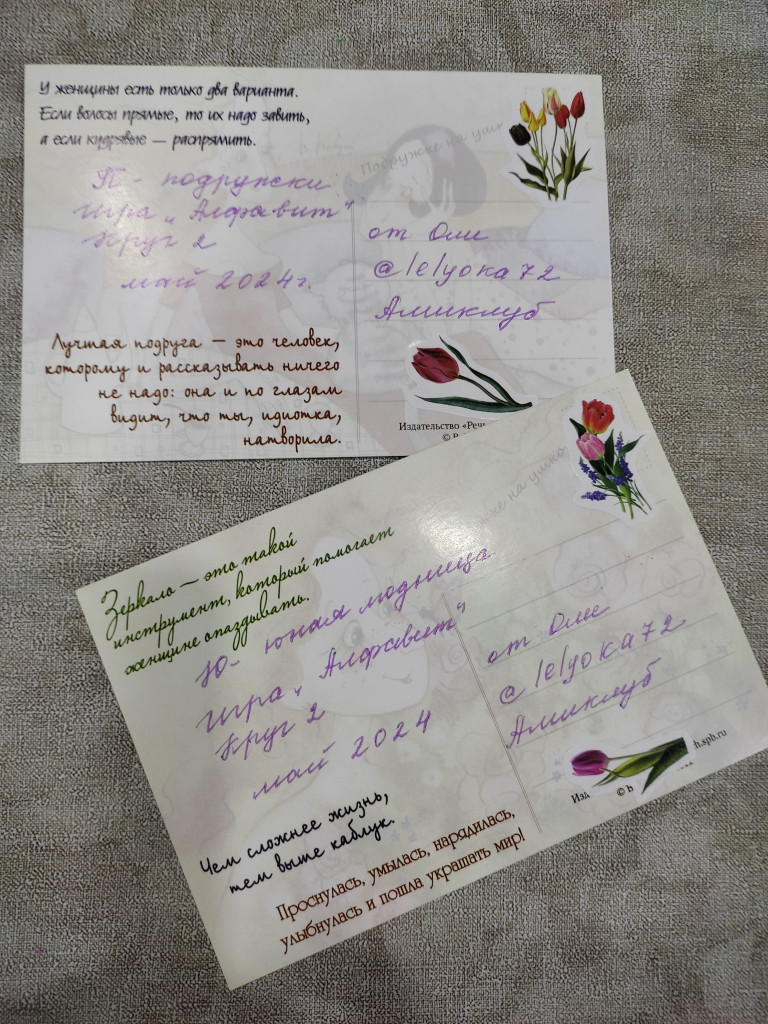 У женщины есть только два варианта.
Если волосы прямые, то их надо завить,
а если кудрявые — распрямить.
Подружке на ушк
П - подружски
игра „Алфавит“
Круг 2
май 2024г.
от Оли
@lelyoka72
Амиклуб
Лучшая подруга — это человек,
которому и рассказывать ничего
не надо: она и по глазам
видит, что ты, идиотка,
натворила.
Издательство «Речь
©
же на ушко
Зеркало — это такой
инструмент, который помогает
женщине опаздывать.
Ю - юная модница
игра „Алфавит“
Круг 2
май 2024
от Оли
@lelyoka72
Амиклуб
h.spb.ru
Изд
©
Чем сложнее жизнь,
тем выше каблук.
Проснулась, умылась, нарядилась,
улыбнулась и пошла украшать мир!